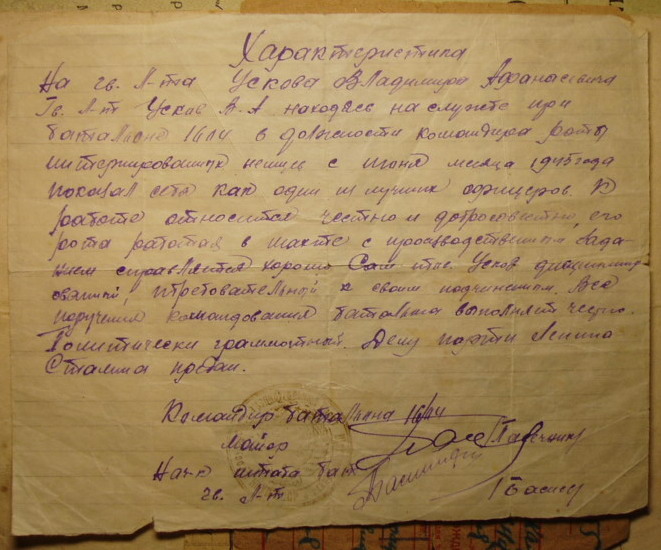 Характеристика
На гв. л-та Ускова Владимира Афанасьевича
Гв. л-т Усков В. А находясь на службе при
батальоне 1614 в должности командира роты
интернированных немцев с июня месяца 1945 года
показал себя как один из лучших офицеров. К
работе относится честно и добросовестно, его
рота работая в шахте с производственным зада-
нием справляется хорошо Сам Усков дисциплинир
ованный, требовательный к своим подчиненым. Все
поручения командования батальона выполняет честно.
Политически грамотный. Делу партии Ленина
Сталина предан.
Командир батальона 1614
майор
Нач-к штаба бат
гв. л-т